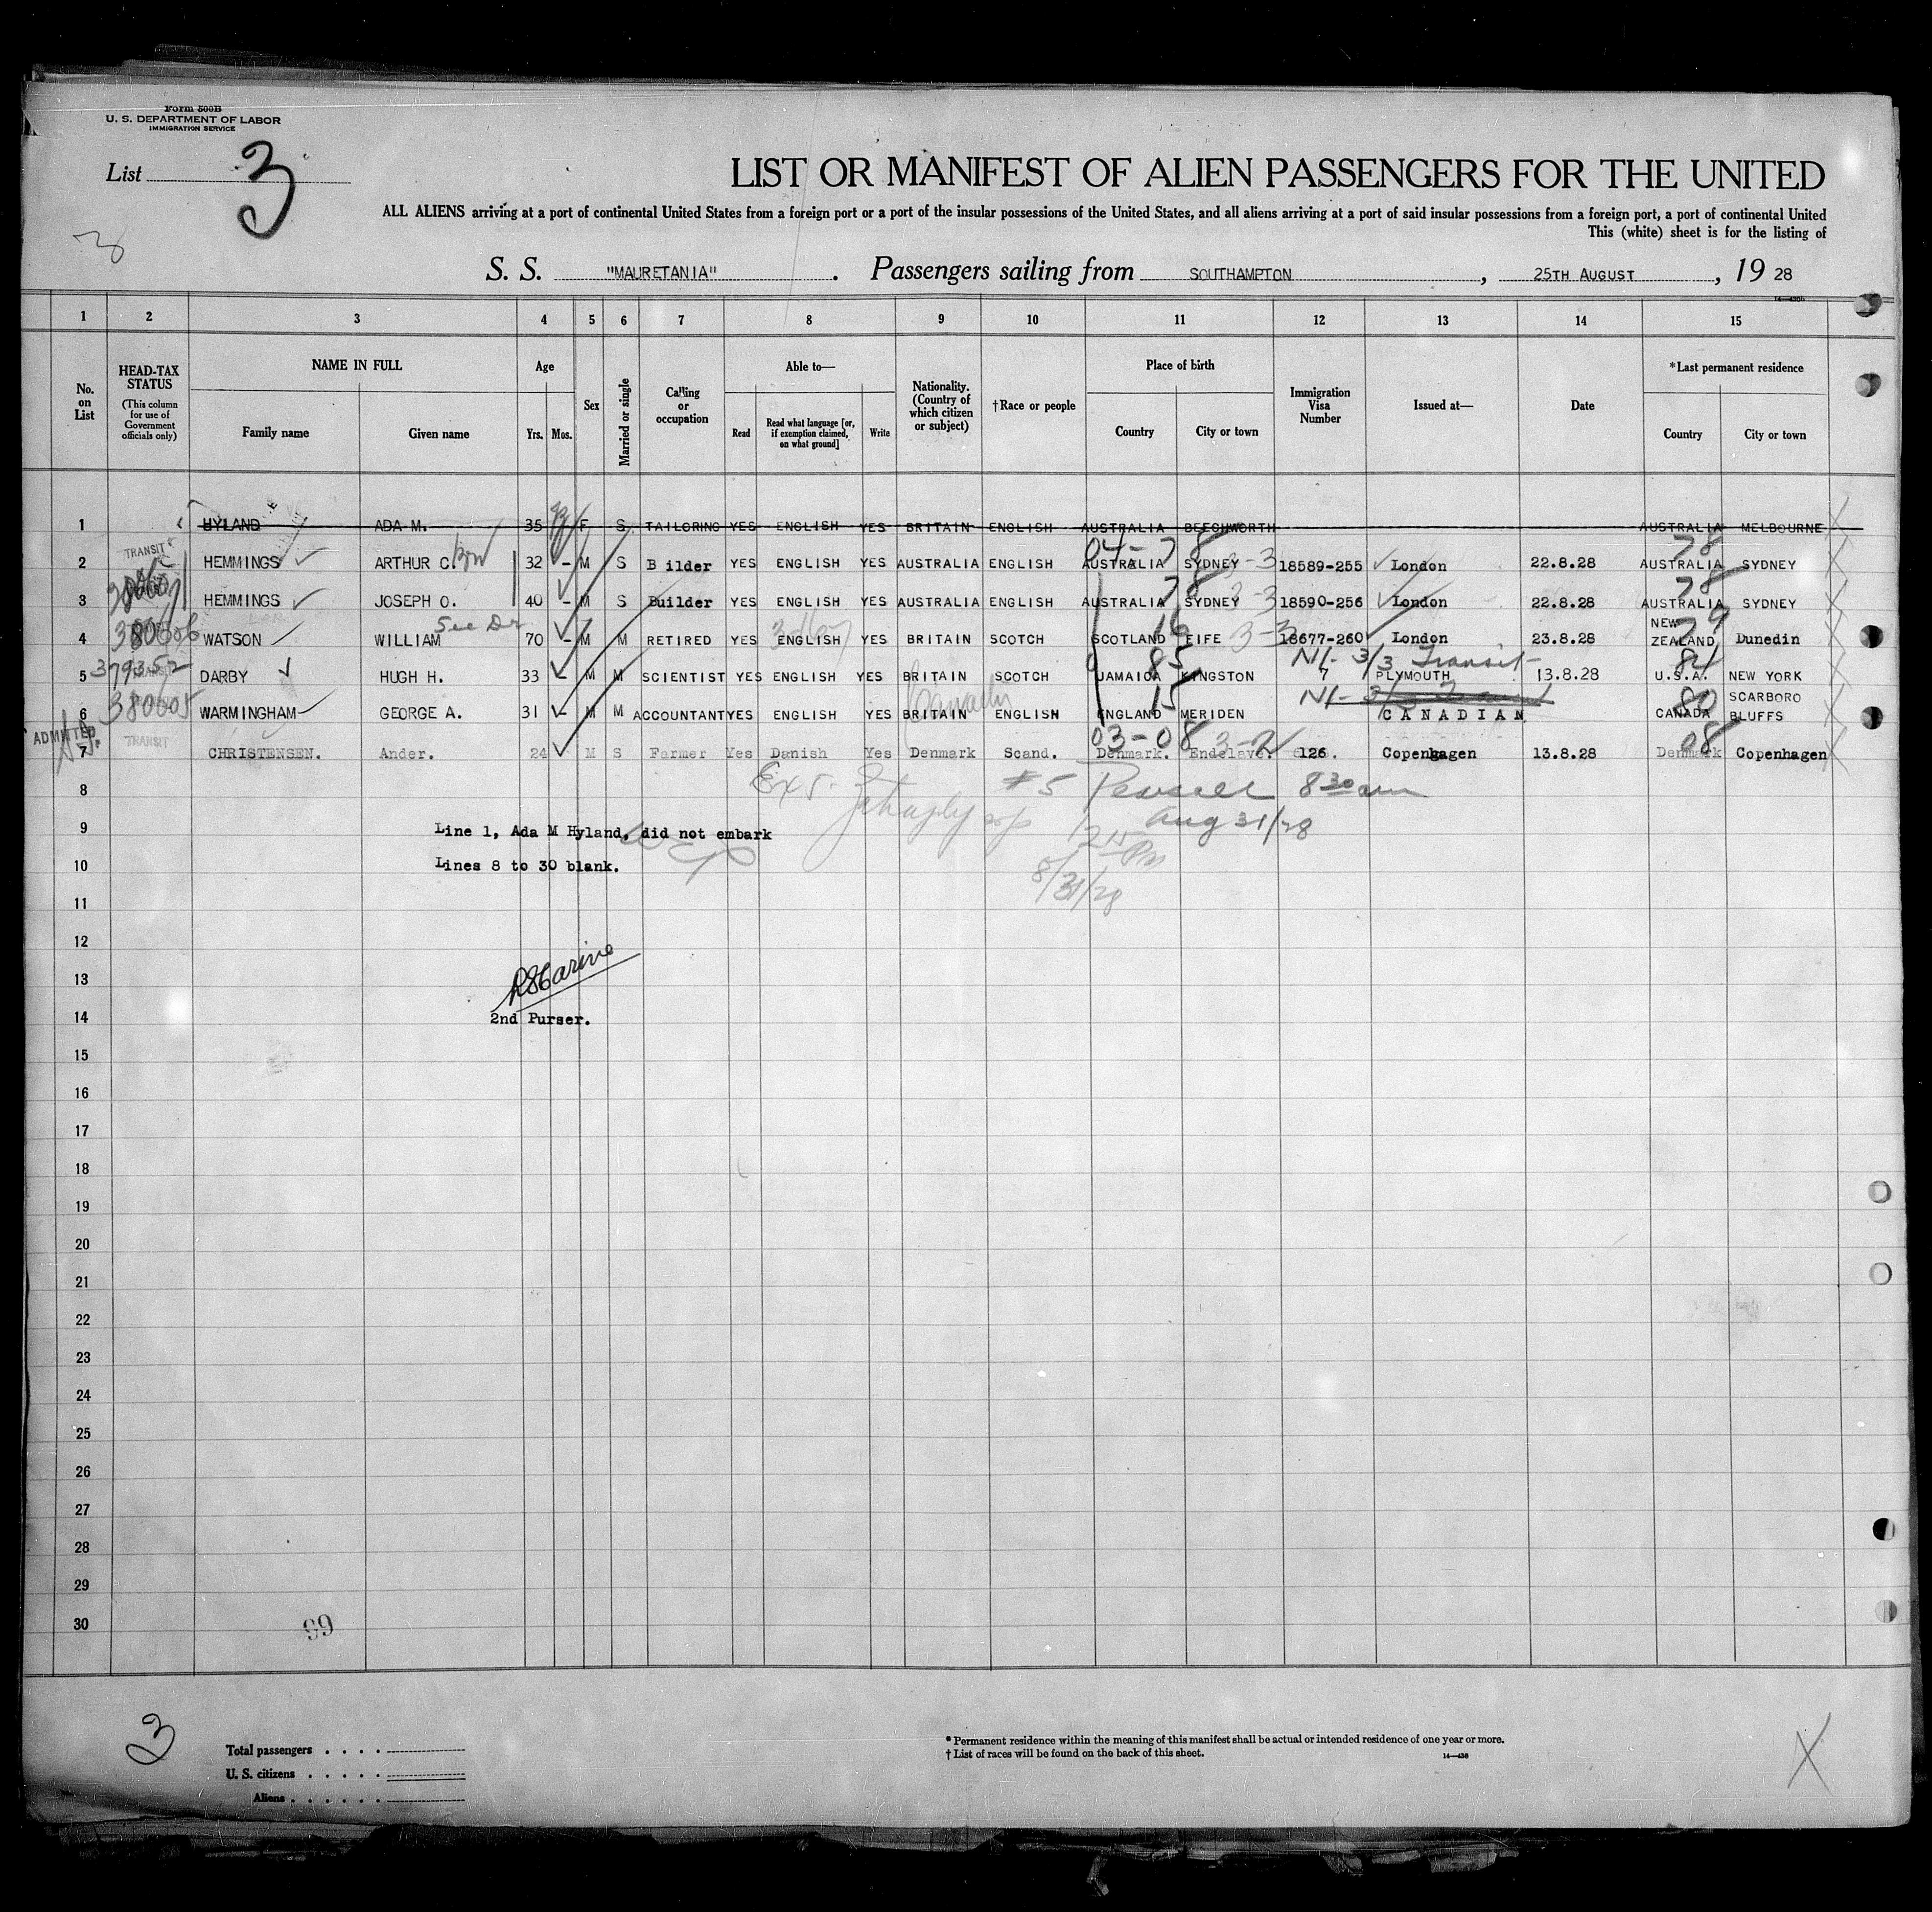 Form 500B
U. S. DEPARTMENT OF LABOR
IMMIGRATION SERVICE
List 3
3
LIST OR MANIFEST OF ALIEN PASSENGERS FOR THE UNITED
ALL ALIENS arriving at a port of continental United States from a foreign port or a port of the insular possessions of the United States, and all aliens arriving at a port of said insular possessions from a foreign port, a port of continental United
This (white) sheet is for the listing of
S. S. "MAURETANIA". Passengers sailing from SOUTHAMPTON, 25TH AUGUST, 19 28
1 2 3 4 5 6 7 8 9 10 11 12 13 14 15
No. on List
HEAD-TAX STATUS (This column for use of Government officials only)
NAME IN FULL
Family name Given name
Age
Yrs. Mos.
Sex
Married or single
Calling or occupation
Able to—
Read Read what language [or, if exemption claimed, on what ground] Write
Nationality. (Country of which citizen or subject)
†Race or people
Place of birth
Country City or town
Immigration Visa Number
Issued at—
Date
*Last permanent residence
Country City or town
1 HYLAND ADA M. 35 F S TAILORING YES ENGLISH YES BRITAIN ENGLISH AUSTRALIA BEECHWORTH AUSTRALIA MELBOURNE
TRANSIT 04-78 78
2 HEMMINGS ARTHUR C. 32 - M S B ilder YES ENGLISH YES AUSTRALIA ENGLISH AUSTRALIA SYDNEY 3-3 18589-255 London 22.8.28 AUSTRALIA SYDNEY
78 78
3 HEMMINGS JOSEPH O. 40 - M S Builder YES ENGLISH YES AUSTRALIA ENGLISH AUSTRALIA SYDNEY 3-3 18590-256 London 22.8.28 AUSTRALIA SYDNEY
See Dr 16 79
4 WATSON WILLIAM 70 - M M RETIRED YES ENGLISH YES BRITAIN SCOTCH SCOTLAND FIFE 3-3 18677-260 London 23.8.28 NEW ZEALAND Dunedin
379352 85 3/3 Transit
5 DARBY HUGH H. 33 - M M SCIENTIST YES ENGLISH YES BRITAIN SCOTCH JAMAICA KINGSTON 7 PLYMOUTH 13.8.28 U.S.A. NEW YORK
380005 15 80
6 WARMINGHAM GEORGE A. 31 - M M ACCOUNTANT YES ENGLISH YES BRITAIN ENGLISH ENGLAND MERIDEN CANADIAN CANADA SCARBORO BLUFFS
ADMITTED TRANSIT 03-08 3-2 08
7 CHRISTENSEN. Ander. 24 M S Farmer Yes Danish Yes Denmark Scand. Denmark. Endelave. 126. Copenhagen 13.8.28 Denmark Copenhagen
8 #5 8 30 am
Aug 31/28
9 Line 1, Ada M Hyland, did not embark
2 15 Pm
10 Lines 8 to 30 blank.
8/31/28
11
12
13
14 2nd Purser.
15
16
17
18
19
20
21
22
23
24
25
26
27
28
29
30
99
3
Total passengers . . . .
U. S. citizens . . . . .
Aliens . . . . . .
* Permanent residence within the meaning of this manifest shall be actual or intended residence of one year or more.
† List of races will be found on the back of this sheet. 14—436
X